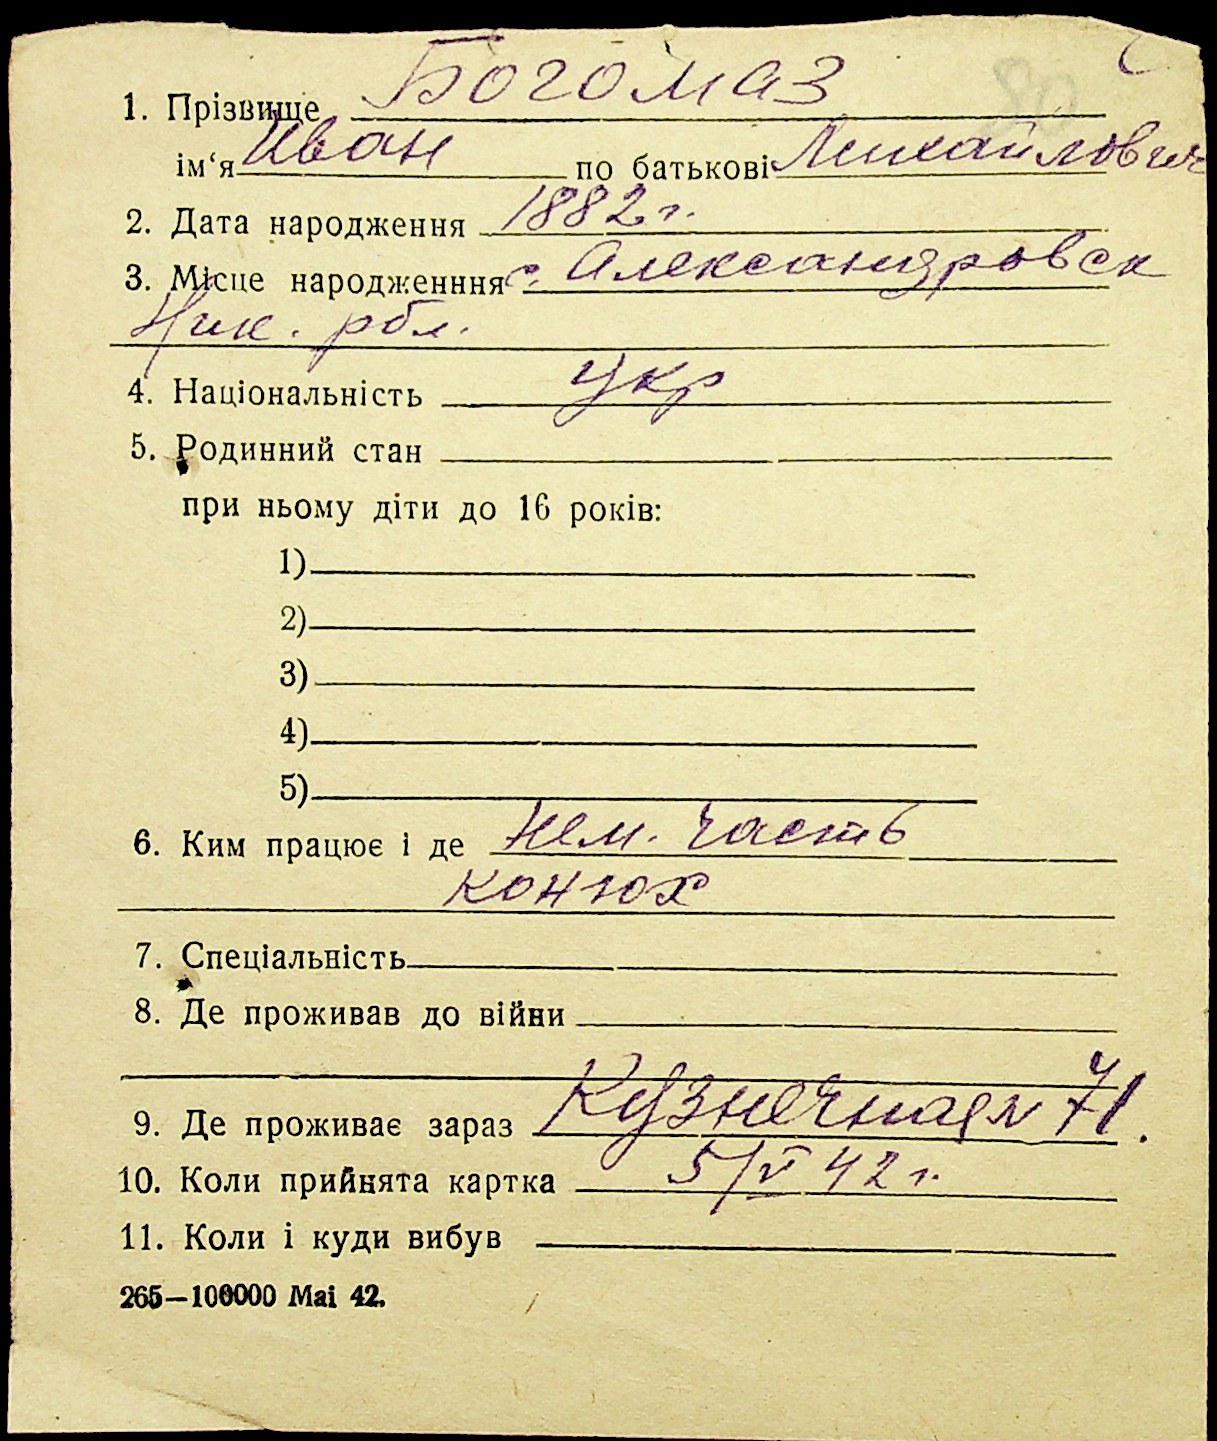 1. Прізвище Богомаз
ім‘я Иван по батькові Михайлович
2. Дата народження 1882 г.
3. Місце народженння с. Александровск
Ник. обл.
4. Національність укр
5. Родинний стан
при ньому діти до 16 років:
1)
2)
3)
4)
5)
6. Ким працює і де Нем. часть
конюх
7. Спеціальність
8. Де проживав до війни
9. Де проживає зараз Кузнечная 71.
10. Коли прийнята картка 5/V 42 г.
11. Коли і куди вибув
265—100000 Mai 42.